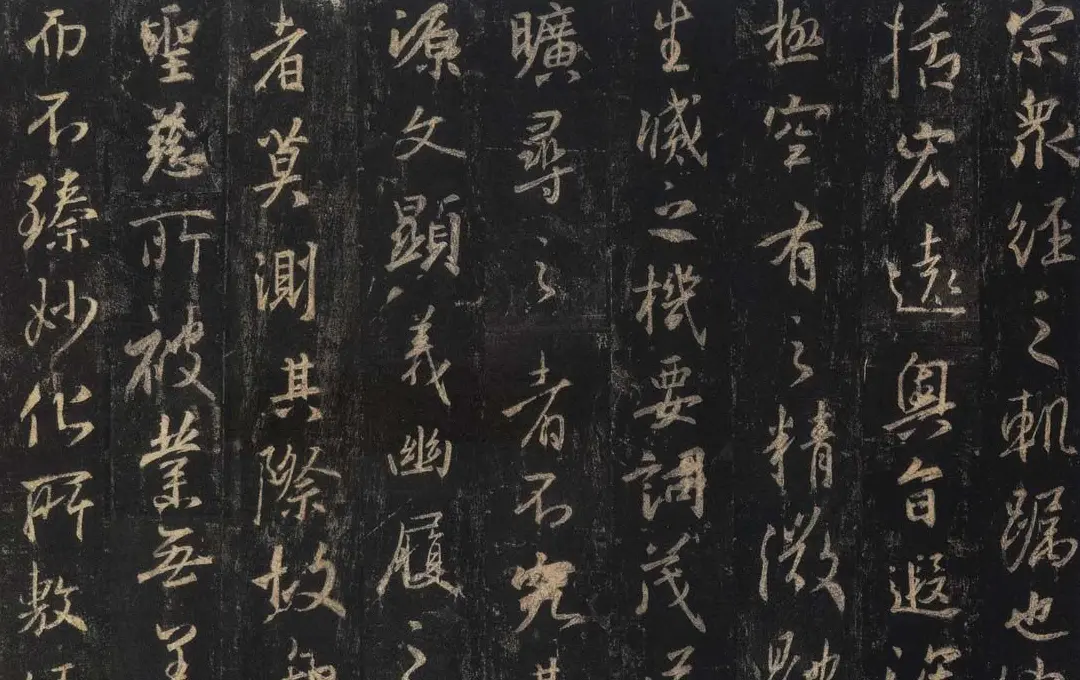 宗衆經之軌躅也
括宏遠奧旨遐
極空有之精微
生滅之機要詞茂
曠尋之者不究
源文顯義幽履之
者莫測其際故
聖慈所被業無
而不臻妙化所敷